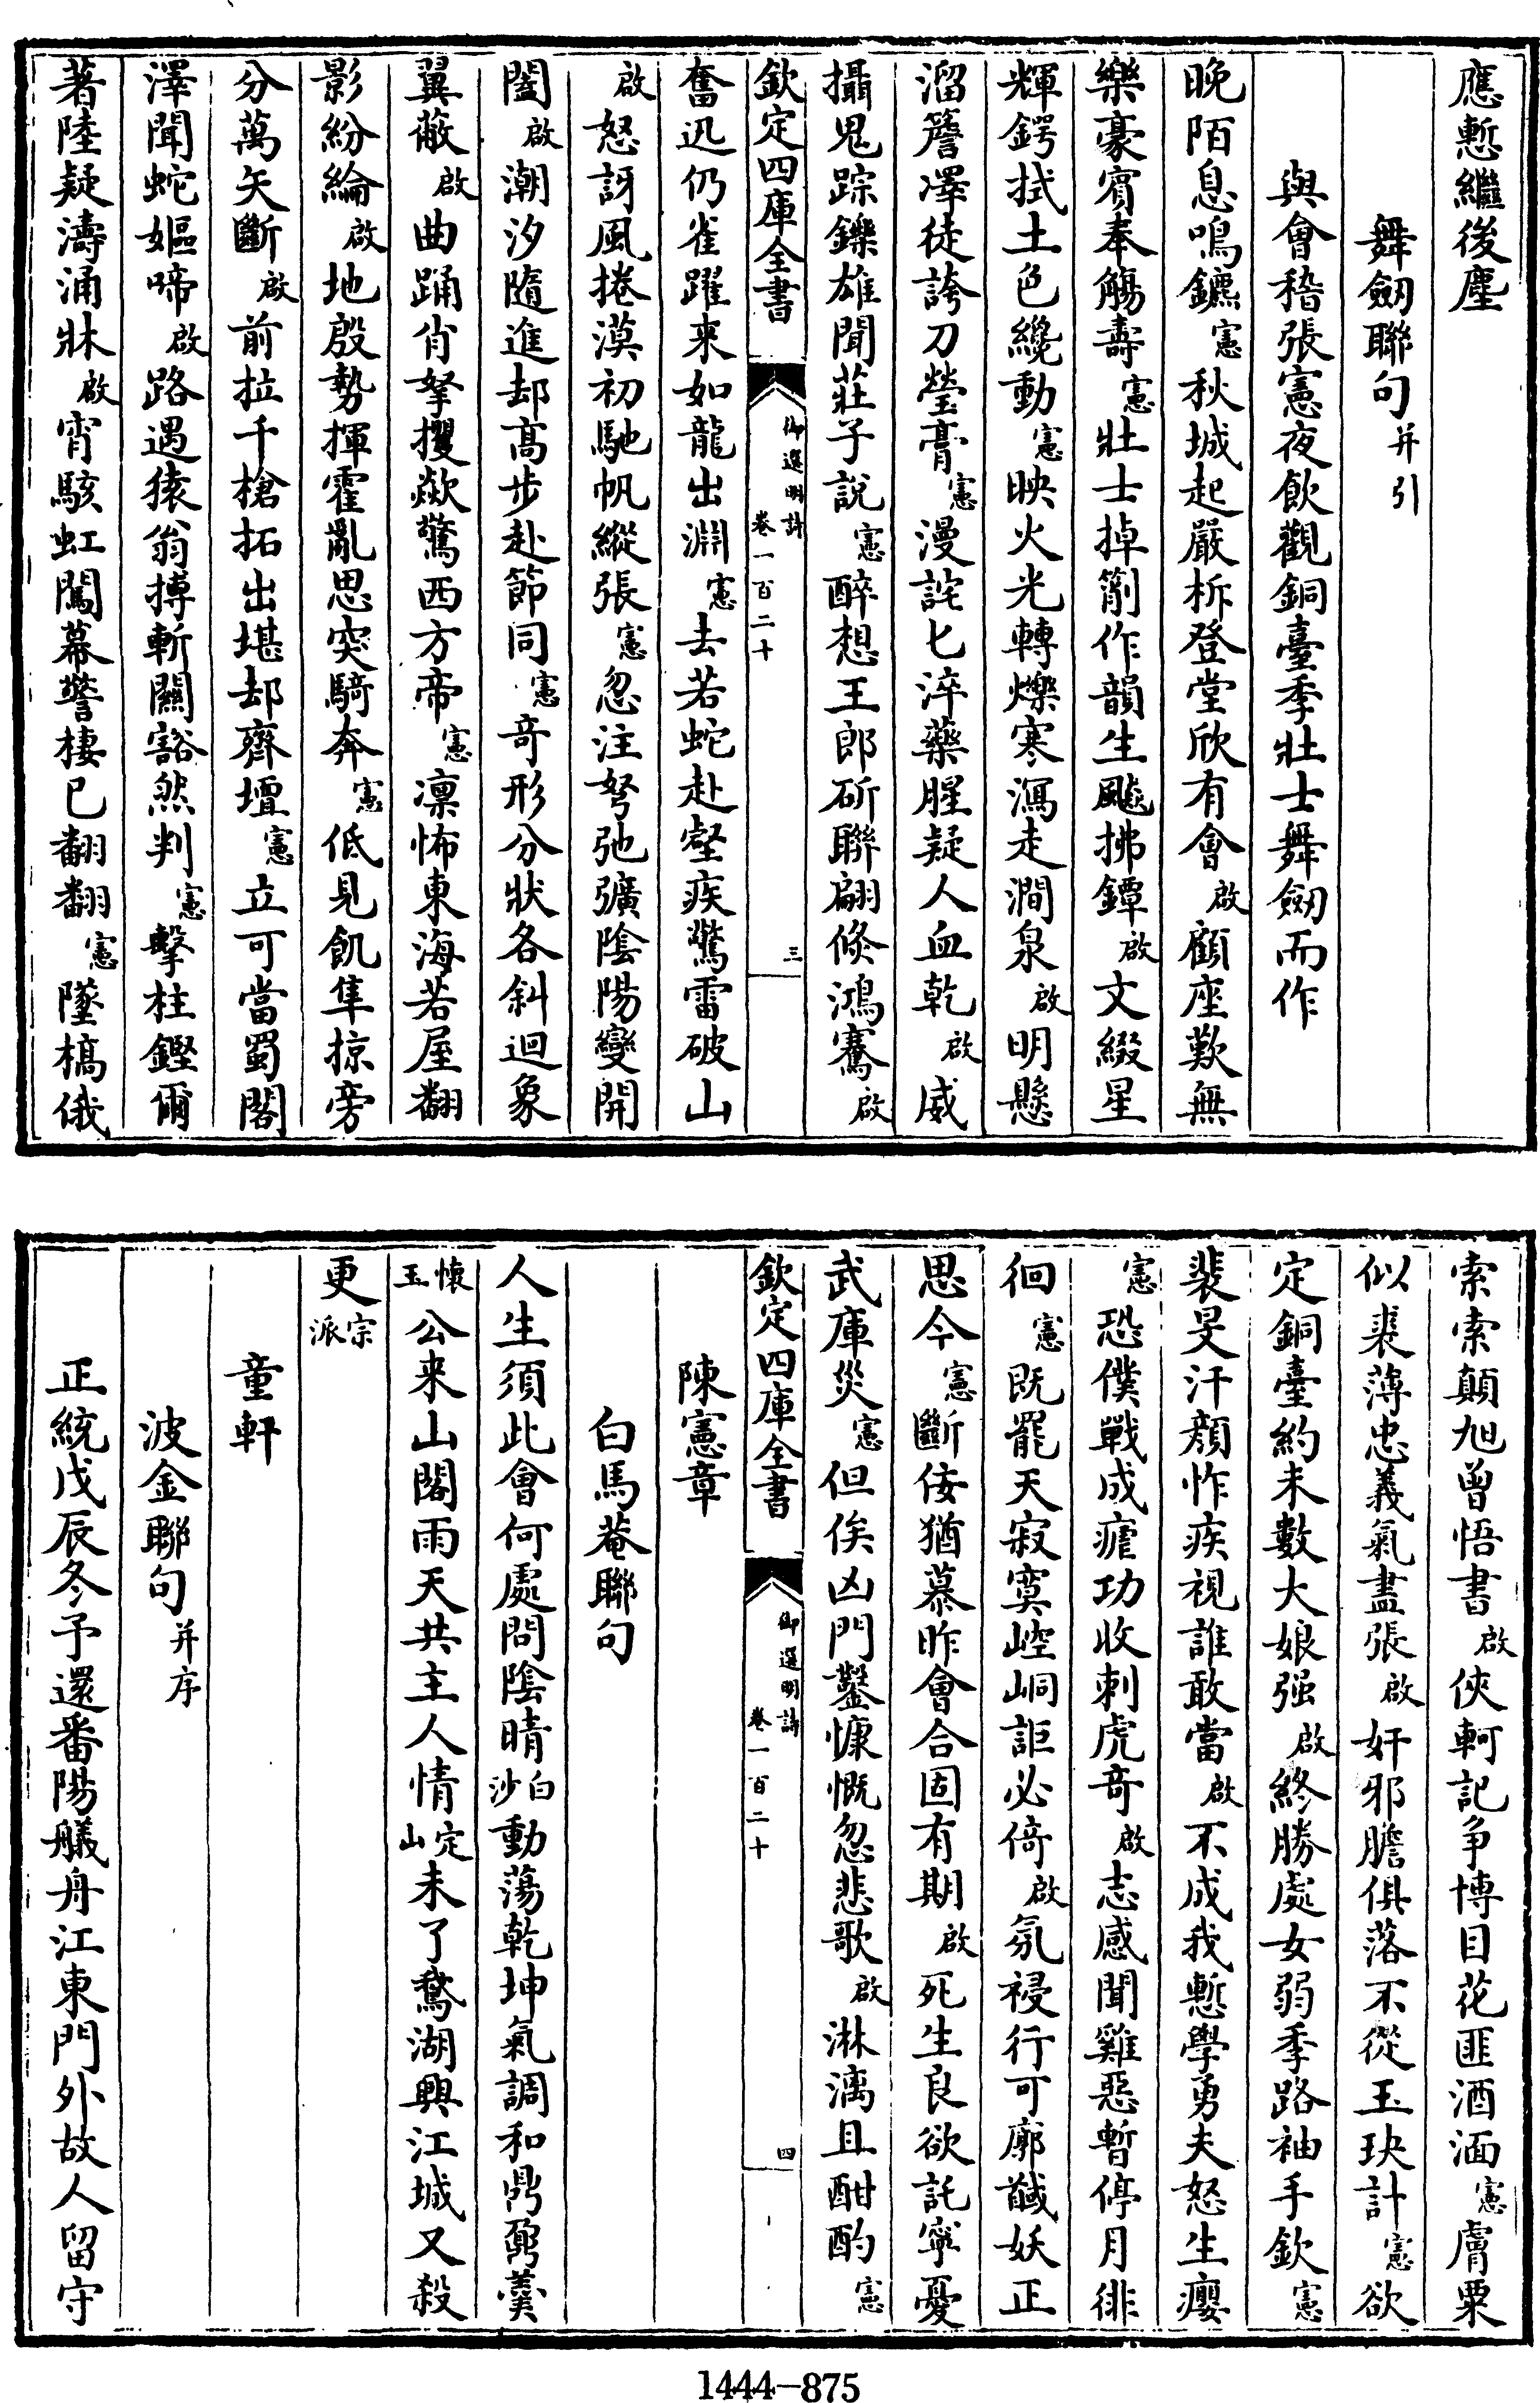 應慙繼後塵
舞劒聯句并引
與會稽張憲夜飲觀銅臺季壯士舞劒而作
晚陌息鳴鑣憲秋城起嚴柝登堂欣有會啟顧座歎無
樂豪賓奉觴壽憲壯士掉箾作韻生颷拂鐔啟文綴星
輝鍔拭土色纔動憲映火光轉爍寒瀉走澗泉啟明懸
溜簷澤徒誇刀瑩膏憲漫詫匕淬藥腥疑人血乾啟威
攝鬼踪鑠雄聞莊子說憲醉想王郎斫聯翩倏鴻騫啟
欽定四庫全書
御選明詩
卷一百二十
三
奮迅仍雀躍来如龍出淵憲去若蛇赴壑疾驚雷破山
啟怒訝風捲漠初馳帆縱張憲忽注弩弛彍陰陽變開
闔啟潮汐隨進却高步赴節同憲奇形分狀各斜迴象
翼蔽啟曲踊肖拏攫歘驚西方帝憲凜怖東海若屋翻
影紛綸啟地殷勢揮霍亂思突騎奔憲低見飢隼掠旁
分萬矢斷啟前拉千槍拓出堪却齊壇憲立可當蜀閣
澤聞蛇嫗啼啟路遇猿翁搏斬關豁然判憲擊柱鏗爾
著陸疑濤涌牀啟宵駭虹闖幕警棲已翻翻憲墜槁俄
索索顛旭曾悟書啟俠軻記爭博目花匪酒湎憲膚粟
似裘薄忠義氣盡張啟奸邪膽俱落不從玉玦計憲欲
定銅臺約未數大娘强啟終勝處女弱季路袖手欽憲
裴旻汗顏怍疾視誰敢當啟不成我慙學勇夫怒生癭
憲恐僕戰成瘧功收刺虎奇啟志感聞雞惡暫停月徘
徊憲既罷天寂寞崆峒詎必倚啟氛祲行可廓馘妖正
思今憲斷佞猶慕昨會合固有期啟死生良欲託寧憂
武庫災憲但俟凶門鑿慷慨忽悲歌啟淋漓且酣酌憲
欽定四庫全書
御選明詩
卷一百二十
四
陳憲章
白馬菴聯句
人生須此會何處問陰晴白沙動蕩乾坤氣調和鼎鼐羹
懷玉公来山閣雨天共主人情定山未了鵞湖興江城又殺
更宗派
童軒
波金聯句并序
正統戊辰冬予還番陽艤舟江東門外故人留守
1444-875